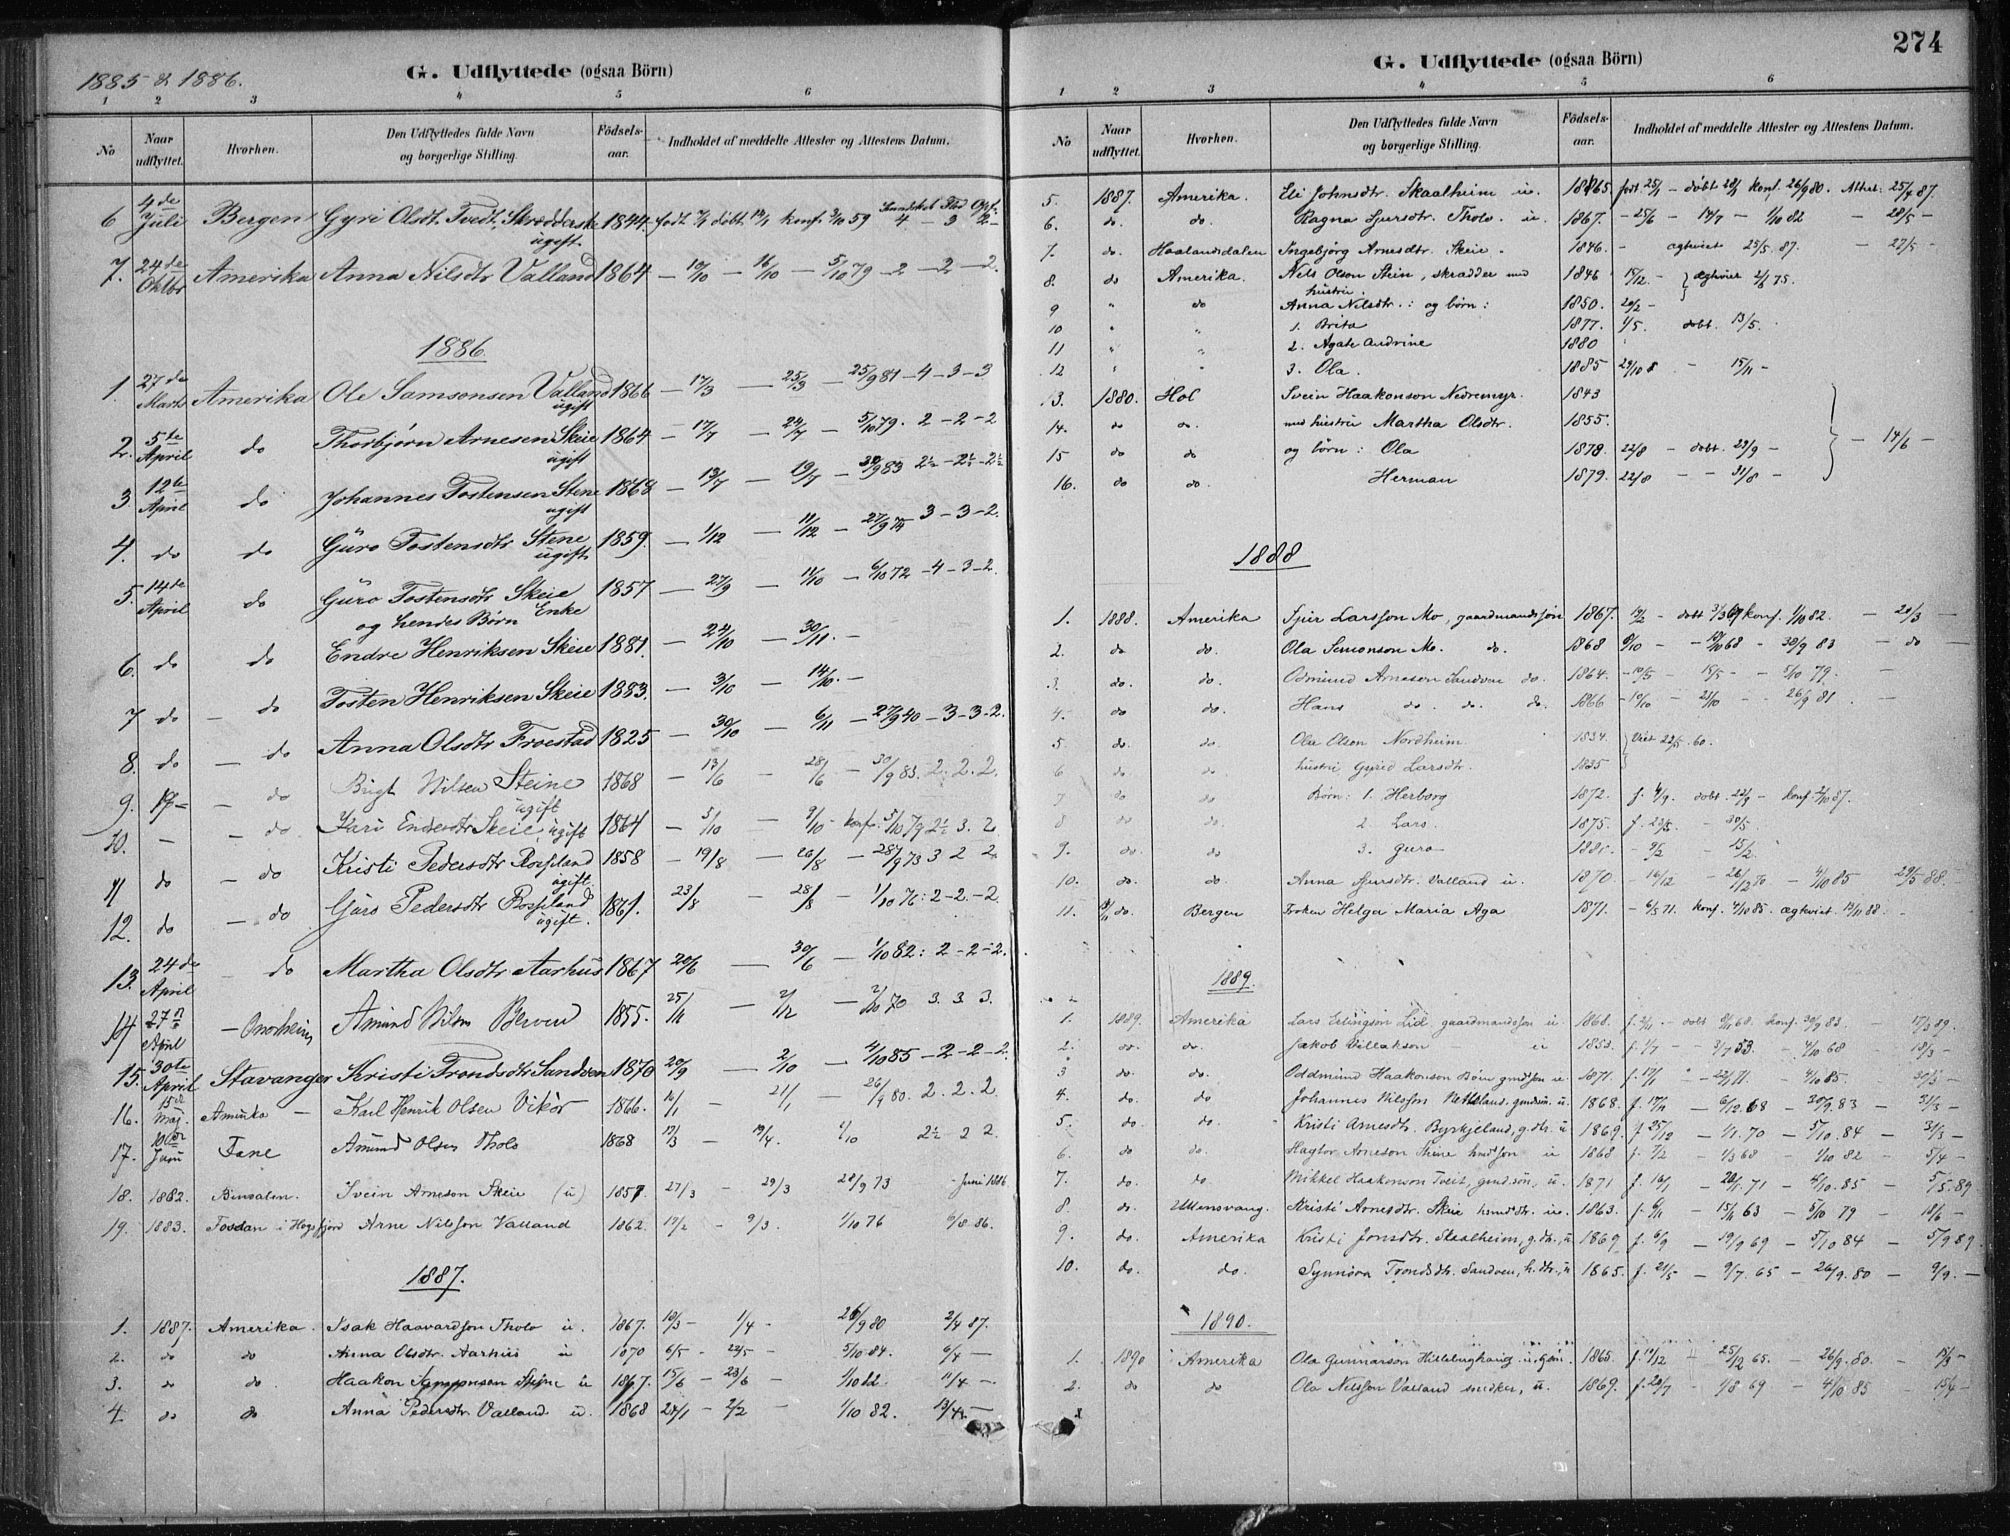 1885 & 1886.
G. Udflyttede (ogsaa Börn)
1 2 3 4 5 6
No Naar udflyttet. Hvorhen. Den Udflyttedes fulde Navn og borgerlige Stilling. Födsels-aar. Indholdet af meddelte Attester og Attestens Datum.
6 4de Juli Bergen Gyri Olsdt. Tvedt, ugift 1844 født döbt konf. 59 4 - 3 2
7. 24de Oktbr Amerika Anna Nilsdtr Valland 1864 - 19/10 - 16/10 - 5/10 79 - 2 - 2 - 2.
1886.
1. 27de Marts Amerika Ole Samsonsen Valland ugift 1866 - 17/3 - 25/3 - 25/9 81 - 4 - 3 - 3
2. 5te April do Thorbjørn Arnesen Skeie ugift 1864 - 17/7 - 24/7 - 5/10 79. 2 - 2 - 2
3 12te April do Johannes Tostensen Stene ugift 1868 - 13/7 - 19/7 - 30/9 83 2½ - 2½ - 2½
4. do do Güro Tostensdtr Stene ugift 1859. - 1/12 - 11/12 - 27/9 74 3 - 3 - 2.
5. 14de April do Güro Tostensdtr Skeie Enke 1857 - 27/9 - 11/10 - 6/10 72 - 4 - 3 - 2.
og hendes Börn
6. do do Endre Henriksen Skeie 1881. - 24/10 - 30/11. -
7 do - do Tosten Henriksen Skeie 1883. - 3/10 - 14/10. -
8. do - do Anna Olsdtr Froestad 1825 - 30/10 - 6/11 - 27/9 40 - 3 - 3 - 2.
9. - do Brigt Nilsen Steine ugift 1868 - 17/6 - 28/6 - 30/9 83. 2. 2. 2.
10. - - do Kari Endresdtr Skeie, ugift 1864 - 5/10 - 9/10 - konf. 5/10 79 2½ 3. 2
11 do - do Kristi Pedersdtr Rosseland ugift. 1858 - 19/8 - 26/8 - 28/9 73 3 2 2
12. do - do Güro Pedersdtr Rosseland ugift. 1861. 23/8 - 28/8 - 1/10 76: 2 - 2 - 2.
13. 24de April - do Martha Olsdtr Aarhus 1867 20/6 - 30/6 - 1/10 82: 2 - 2 - 2.
14 27 April - Amund Nilsen Berven 1855. 25/11 - 2/12 - 70 3. 3. 3.
15. 30te April Stavanger Kristi Trondsdtr Sandven 1870 20/9 - 2/10 - 4/10 85 - 2 - 2 - 2.
16. Maj. Amerika - Karl Henrik Olsen Vikør 1866. - 21/1 - 26/9 80. 2. 2. 2.
17. Juni Fane Amund Olsen Tholo 1868 17/3 - 19/4. 1/10 2½ 2 2.
18. 1882. Svein Arneson Skeie (u) 1857. 27/3 - 29/3 28/9 73 - Juni 1886
19. 1883. Arne Nilsson Valland 1862. 19/2 - 9/3. 1/10 76 6/8 86.
1887.
1. 1887. Amerika. Isak Haavardson Tholo u. 1867. 18/3 - 1/4 - 26/9 80 2/4 87.
2. do do Anna Olsdtr. Aarhus u 1870 6/5 - 22/5 - 5/10 84. 6/4 -
3. do do Haakon Samsonson Steine u 1867. 15/6 - 23/6 - 1/10 82. 11/4 -
4. do do Anna Pedersdtr Valland u. 1868 24/1 - 2/2 - 1/10 82. 13/4 -
274
G. Udflyttede (ogsaa Börn)
1 2 3 4 5 6
No Naar udflyttet. Hvorhen. Den Udflyttedes fulde Navn og borgerlige Stilling. Födsels-aar. Indholdet af meddelte Attester og Attestens Datum.
5. 1887. Amerika. Eli Johnsdtr. Skaalheim u. 1865. født 25/1 - döbt 28/1 konf. 26/9 80. Attest. 25/4 87.
6. do. do. Ragna Sjursdtr. Tholo. u. 1867. - 25/6 - 14/7 - 1/10 82 - 28/5 -
7. do. Haalandsdalen Ingebjørg Arnesdtr. Skeie. 1846. - ægteviet 25/5. 87. - 27/5 -
8. do Amerika. Nils Olson Stein, skrædder med hustru 1846 15/12. - ægteviet 2/6 75.
9 " do Anna Nilsdtr.: og børn: 1850. 20/2 -
10 " " 1. Brita 1877. 4/5. døbt. 13/5.
11 " " 2. Agate Andrine 1880 "
12 " " 3. Ola. 1885 29/10 - 15/11 -
13. 1880. Hol Svein Haakonson Nedremyr. 1843
14. do do. med hustru Martha Olsdtr. 1855.
15 do do og børn: Ola 1878. 22/8 - døbt. 29/9 - - 14/6 -
16. do do. Herman 1879. 22/8 - - 31/8 -
1888
1. 1888. Amerika Sjur Larsson Mo, gaardmandssøn 1867. 19/2 - döbt 3/3 67 konf. 1/10 82. - 20/3 -
2. do do. Ola Simonson Mo. do. 1868 8/10 - - 10/10 68 - 30/9 83 - do -
3. do. do. Odmund Arneson Sandven do. 1864. - 10/5 - 15/5 - - 5/10 79. -
4. do do. Hans do. do. do. 1866 - 10/10 - 21/10 - - 26/9 81. -
5. do. do. Ola Olson Nordheim 1834. Viet 22/5. 60.
6 do. do hustru Gyrid Larsdtr. 1835
7 do do Børn: 1. Herborg 1872. f. 4/9. døbt. 22/9 - konf. 2/10 87.
8 do do. 2. Lars. 1875. f. 23/5. - 30/5.
9. do. do 3. Guro - 9/2 - 15/2.
10. do. do. Anna Sjursdtr. Valland u. 1870. - 16/12 - 26/12 70 - 4/10 85 29/5 88.
11. do. Bergen Frøken Helga Maria Aga 1871. - 6/5 71. konf. 4/10 85. ægteviet 88.
1889.
1. 1889. Amerika Lars Erlingson Lid gaardmandssøn u. 1868. f. - døbt 68. konf. 30/9 83. - 15/3 89.
2. do do. Jakob Villakson - u 1853. f. 1/7 - - 3/7 53. - 4/10 68 - 18/3 -
3 do. do. Oddmund Haakonson u. 1871. f. 17/1 - 22/1 71. - 4/10 85. 30/3 -
4. do. do Johannes Nilsson Netteland, u. 1868. f. 17/11 - 6/12 68 - 30/9. 83 - 31/3 -
5. do. do. Kristi Arnesdtr. Byrkjeland, g. dtr. u 1869. f. 25/12 - 1/1. 70 - 5/10. 84 - 31/3 -
6. do do. Hagtor Arneson Steine u 1868 f. 7/2 - 1/3 68 - 1/10 82 - 5/4 -
7. do. do. Mikkel Haakonson Tveit, u. 1871 f. 16/1 - 28/1. 71 - 4/10. 85 - 5/5. 89
8. do. Ullensvang. Kristi Arnesdtr. Skeie u. 1863. f. 6/11 - 15/11 63 - 5/10 79 - 18/6 -
9. do. Amerika Kristi Jonsdtr. Skaalheim, g. dtr., u 1869 f. 6/9 - 19/9 69 - 5/10 84 - 5/9 89
10. do. do. Synnøva Trondsdtr. Sandven, h. dtr., u 1865. f. 21/5 - 9/7. 65 - 26/9. 80 - 9/9. -
1890.
1. 1890 Amerika Ola Gunnarson 1865. f. 11/12 - 25/12 65. - 26/9. 80. - 15/3 -
2. do do Ola Nilsson Valland snedker, u. 1869. f. 20/7 - 1/8 69 - 4/10 85 - 15/4 -
3